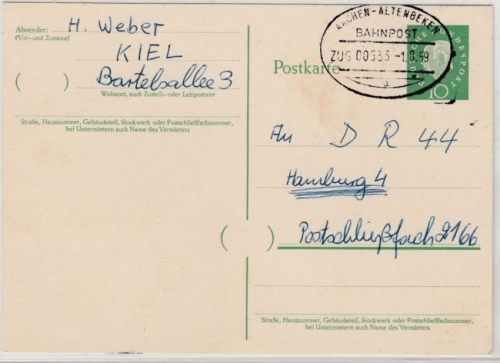 Absender:
(Vor- und Zuname)
H. Weber
KIEL
Bartelsallee 3
( )
Wohnort, auch Zustell- oder Leitpostamt
Straße, Hausnummer, Gebäudeteil, Stockwerk oder Postschließfachnummer,
bei Untermietern auch Name des Vermieters
AACHEN-ALTENBEKEN
BAHNPOST
ZUG 00533 -1.8.59
Postkarte
10
An D R 44
Hamburg 4
Postschließfach 2166
( )
Straße, Hausnummer, Gebäudeteil, Stockwerk oder Postschließfachnummer,
bei Untermietern auch Name des Vermieters